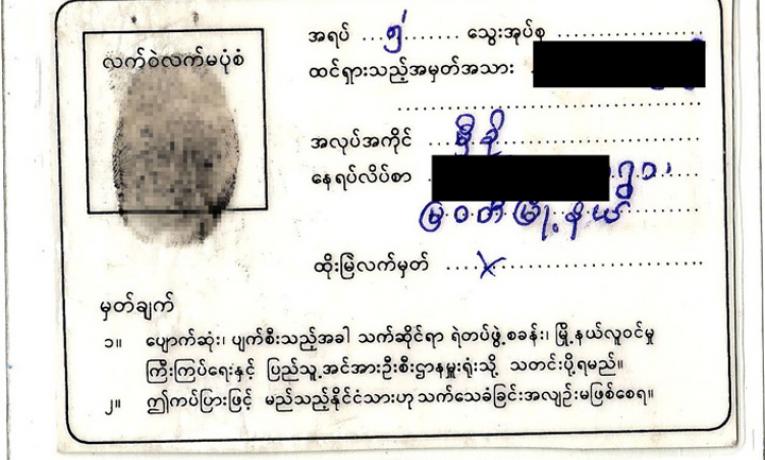 လက်ဝဲလက်မပုံစံ
အရပ် ၅' သွေးအုပ်စု
ထင်ရှားသည့်အမှတ်အသား
အလုပ်အကိုင် မှီခို
နေရပ်လိပ်စာ ရွာ၊
မြဝတီမြို့နယ်
ထိုးမြဲလက်မှတ် x
မှတ်ချက်
၁။ ပျောက်ဆုံး၊ ပျက်စီးသည့်အခါ သက်ဆိုင်ရာ ရဲတပ်ဖွဲ့စခန်း၊ မြို့နယ်လူဝင်မှု
ကြီးကြပ်ရေးနှင့် ပြည်သူ့အင်အားဦးစီးဌာနမှူးရုံးသို့ သတင်းပို့ရမည်။
၂။ ဤကပ်ပြားဖြင့် မည်သည့်နိုင်ငံသားဟု သက်သေခံခြင်းအလျဉ်းမဖြစ်စေရ။